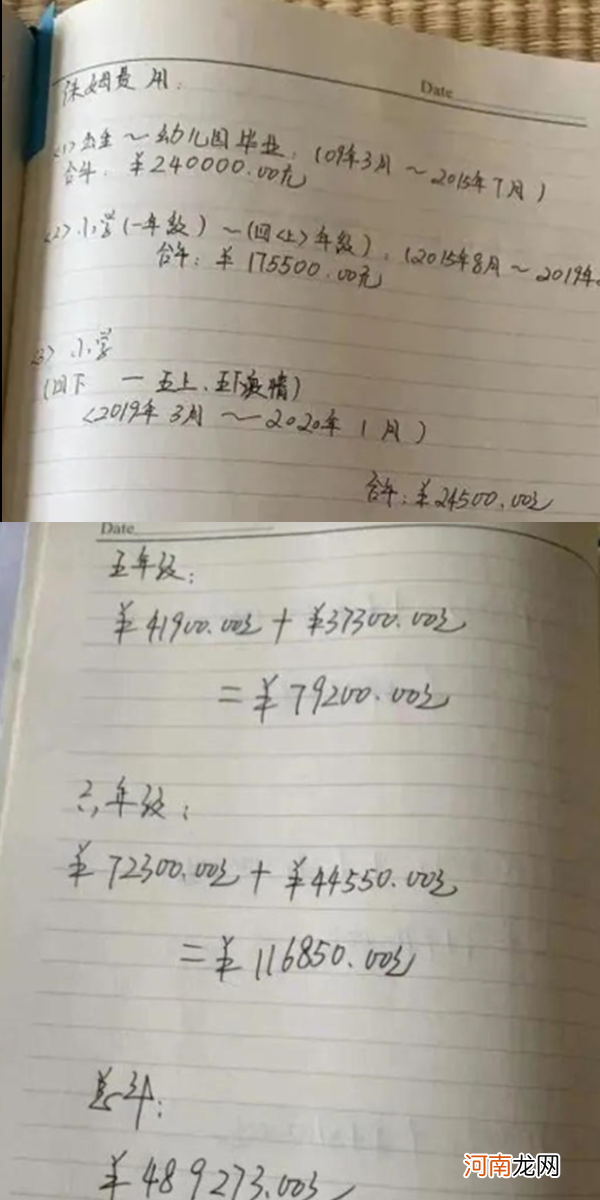 Date
保姆费用:
<1> 出生~幼儿园毕业:(09年3月~2015年7月)
合计:¥240000.00元
<2> 小学(一年级)~(四<上>年级):(2015年8月~2019年
合计:¥175500.00元
<3> 小学
(四下 一 五上、五下疫情)
<2019年3月~2020年1月)
合计:¥24500.00元
Date
五年级:
¥41900.00元+¥37300.00元
=¥79200.00元
六年级:
¥72300.00元+¥44550.00元
=¥116850.00元
总计:
¥489273.00元
河南龙网